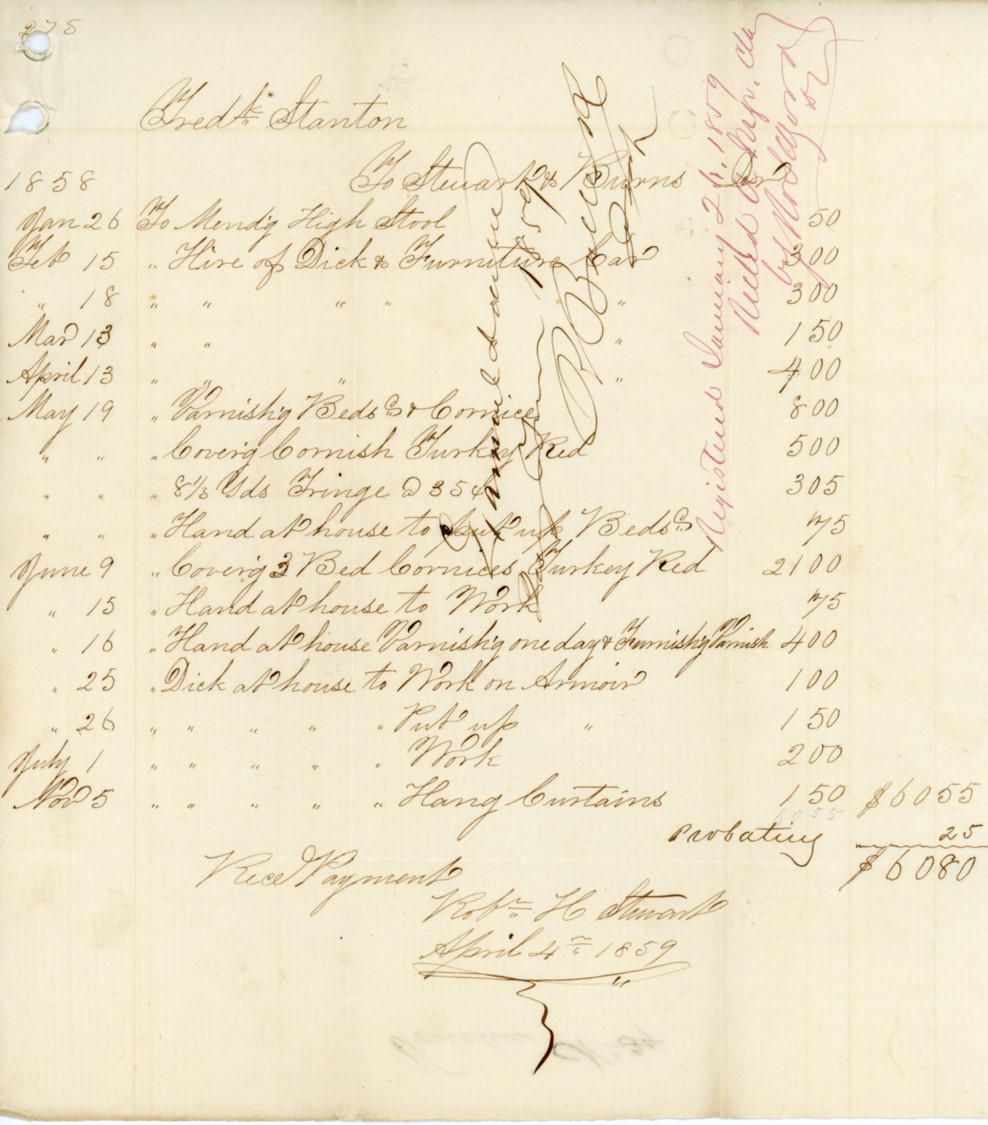 275
Fredk Stanton
1858 To Stewart & Burns Dr
Jan 26 To Mend'g High Stool 50
Feb 15 " Hire of Dick & Furniture Car 300
" 18 " " " " " 300
Mar 13 " " " 150
April 13 " " " " 400
May 19 " Varnish'g Beds & Cornice 800
" " " Cover'g Cornish Turkey Red 500
" " " 8 1/3 Yds Fringe @ 35¢ 305
" " " Hand at house to put up Beds 75
June 9 " Cover'g 3 Bed Cornices Turkey Red 2100
" 15 " Hand at house to Work 75
" 16 " Hand at house Varnish'g one day & Furnish'g Varnish 400
" 25 " Dick at house to Work on Armoir 100
" 26 " " " " " Put up " 150
July 1 " " " " " Work 200
Nov 5 " " " " " Hang Curtains 150 $6055
Probating 25
$6080
Rec'd Payment
Robt H Stewart
April 4th 1859
Examined & allowed
1859
Registered January 26, 1859